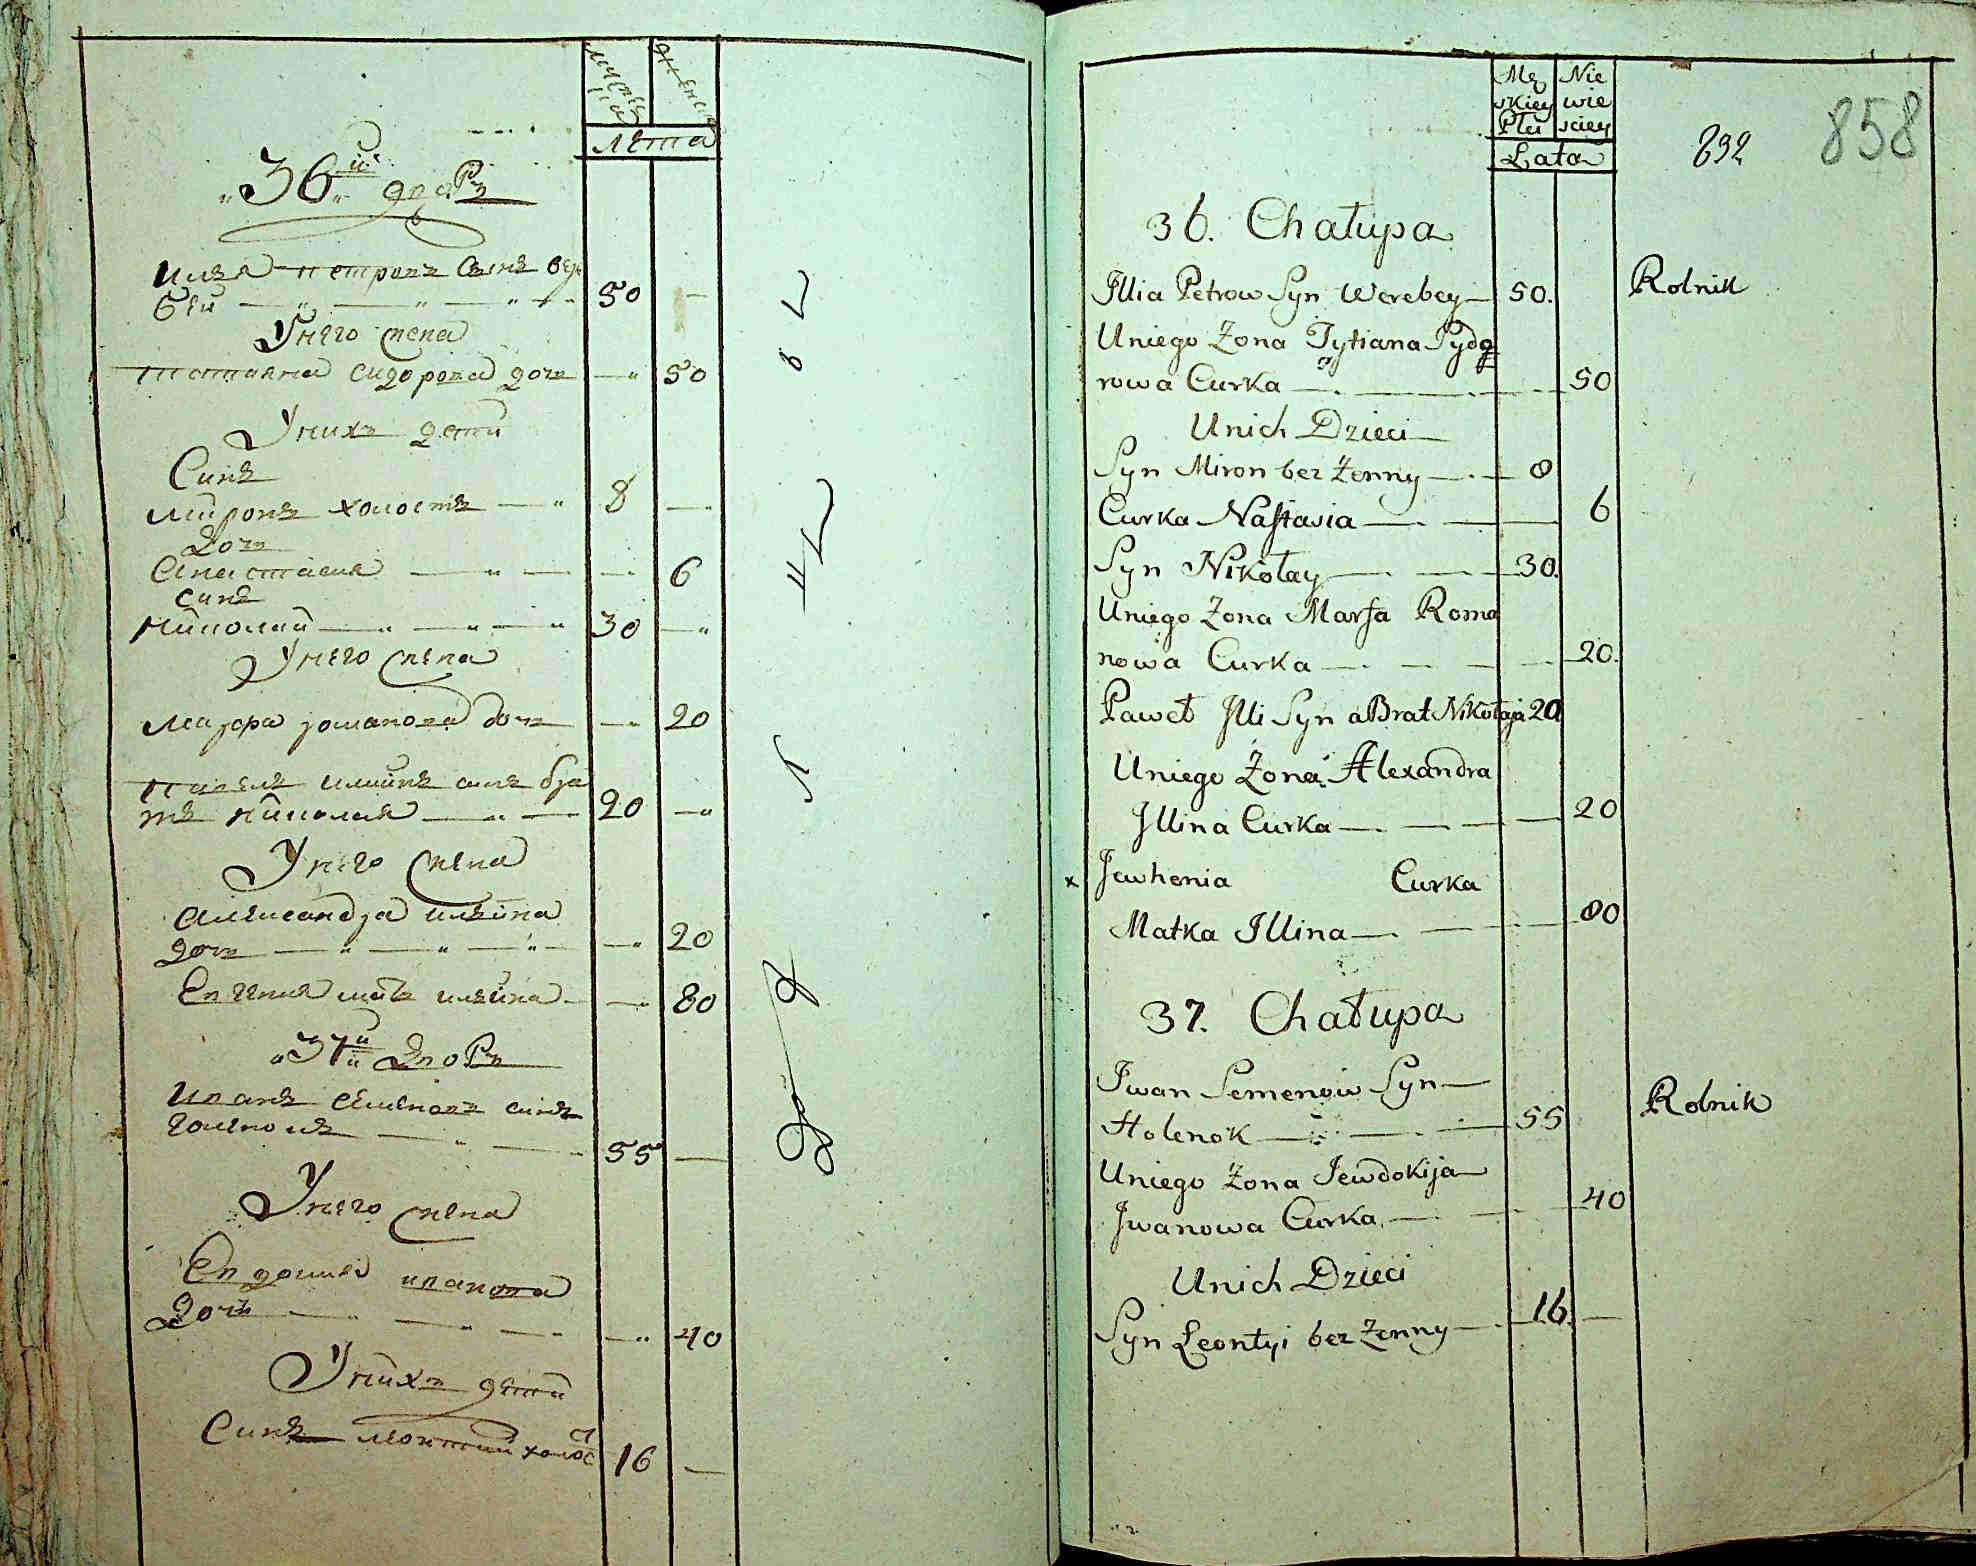 Лѣта
"36"й дворъ
Илья Петровъ Сынъ вере
бей 50
У него жена
Татьяна Сидорова дочь 50
У нихъ дети
Синъ
Миронъ холостъ 8
Дочь
Анастасия 6
синъ
Николай 30
У него жена
Марфа романова дочь 20
Павелъ ильинъ синъ бра
тъ Николая 20
У него жена
Александра ильина
дочь 20
Евгения мать ильина 80
"37"й Дворъ
Иванъ Семеновъ синъ
Голенокъ 55
У него жена
Евдокия иванова
Дочь 40
У нихъ дети
Синъ леонтий холост 16
Mę Nie
skiey wie
Płci sciey
Lata
892 858
36. Chałupa
Illia Petrow Syn Werebey 50. Rolnik
Uniego Żona Tytiana Sydo
rowa Curka 50
Unich Dzieci
Syn Miron bez Żenny 8
Curka Nastasia 6
Syn Nikołay 30.
Uniego Żona Marfa Roma
nowa Curka 20.
Paweł Illi Syn a Brat Nikołaja 20
Uniego Żona Alexandra
Illina Curka 20
x Jewhenia Curka
Matka Illina 80
37. Chałupa
Jwan Semenow Syn Rolnik
Holenok 55
Uniego Żona Jewdokija
Jwanowa Curka 40
Unich Dzieci
Syn Leontyi bez Żenny 16.